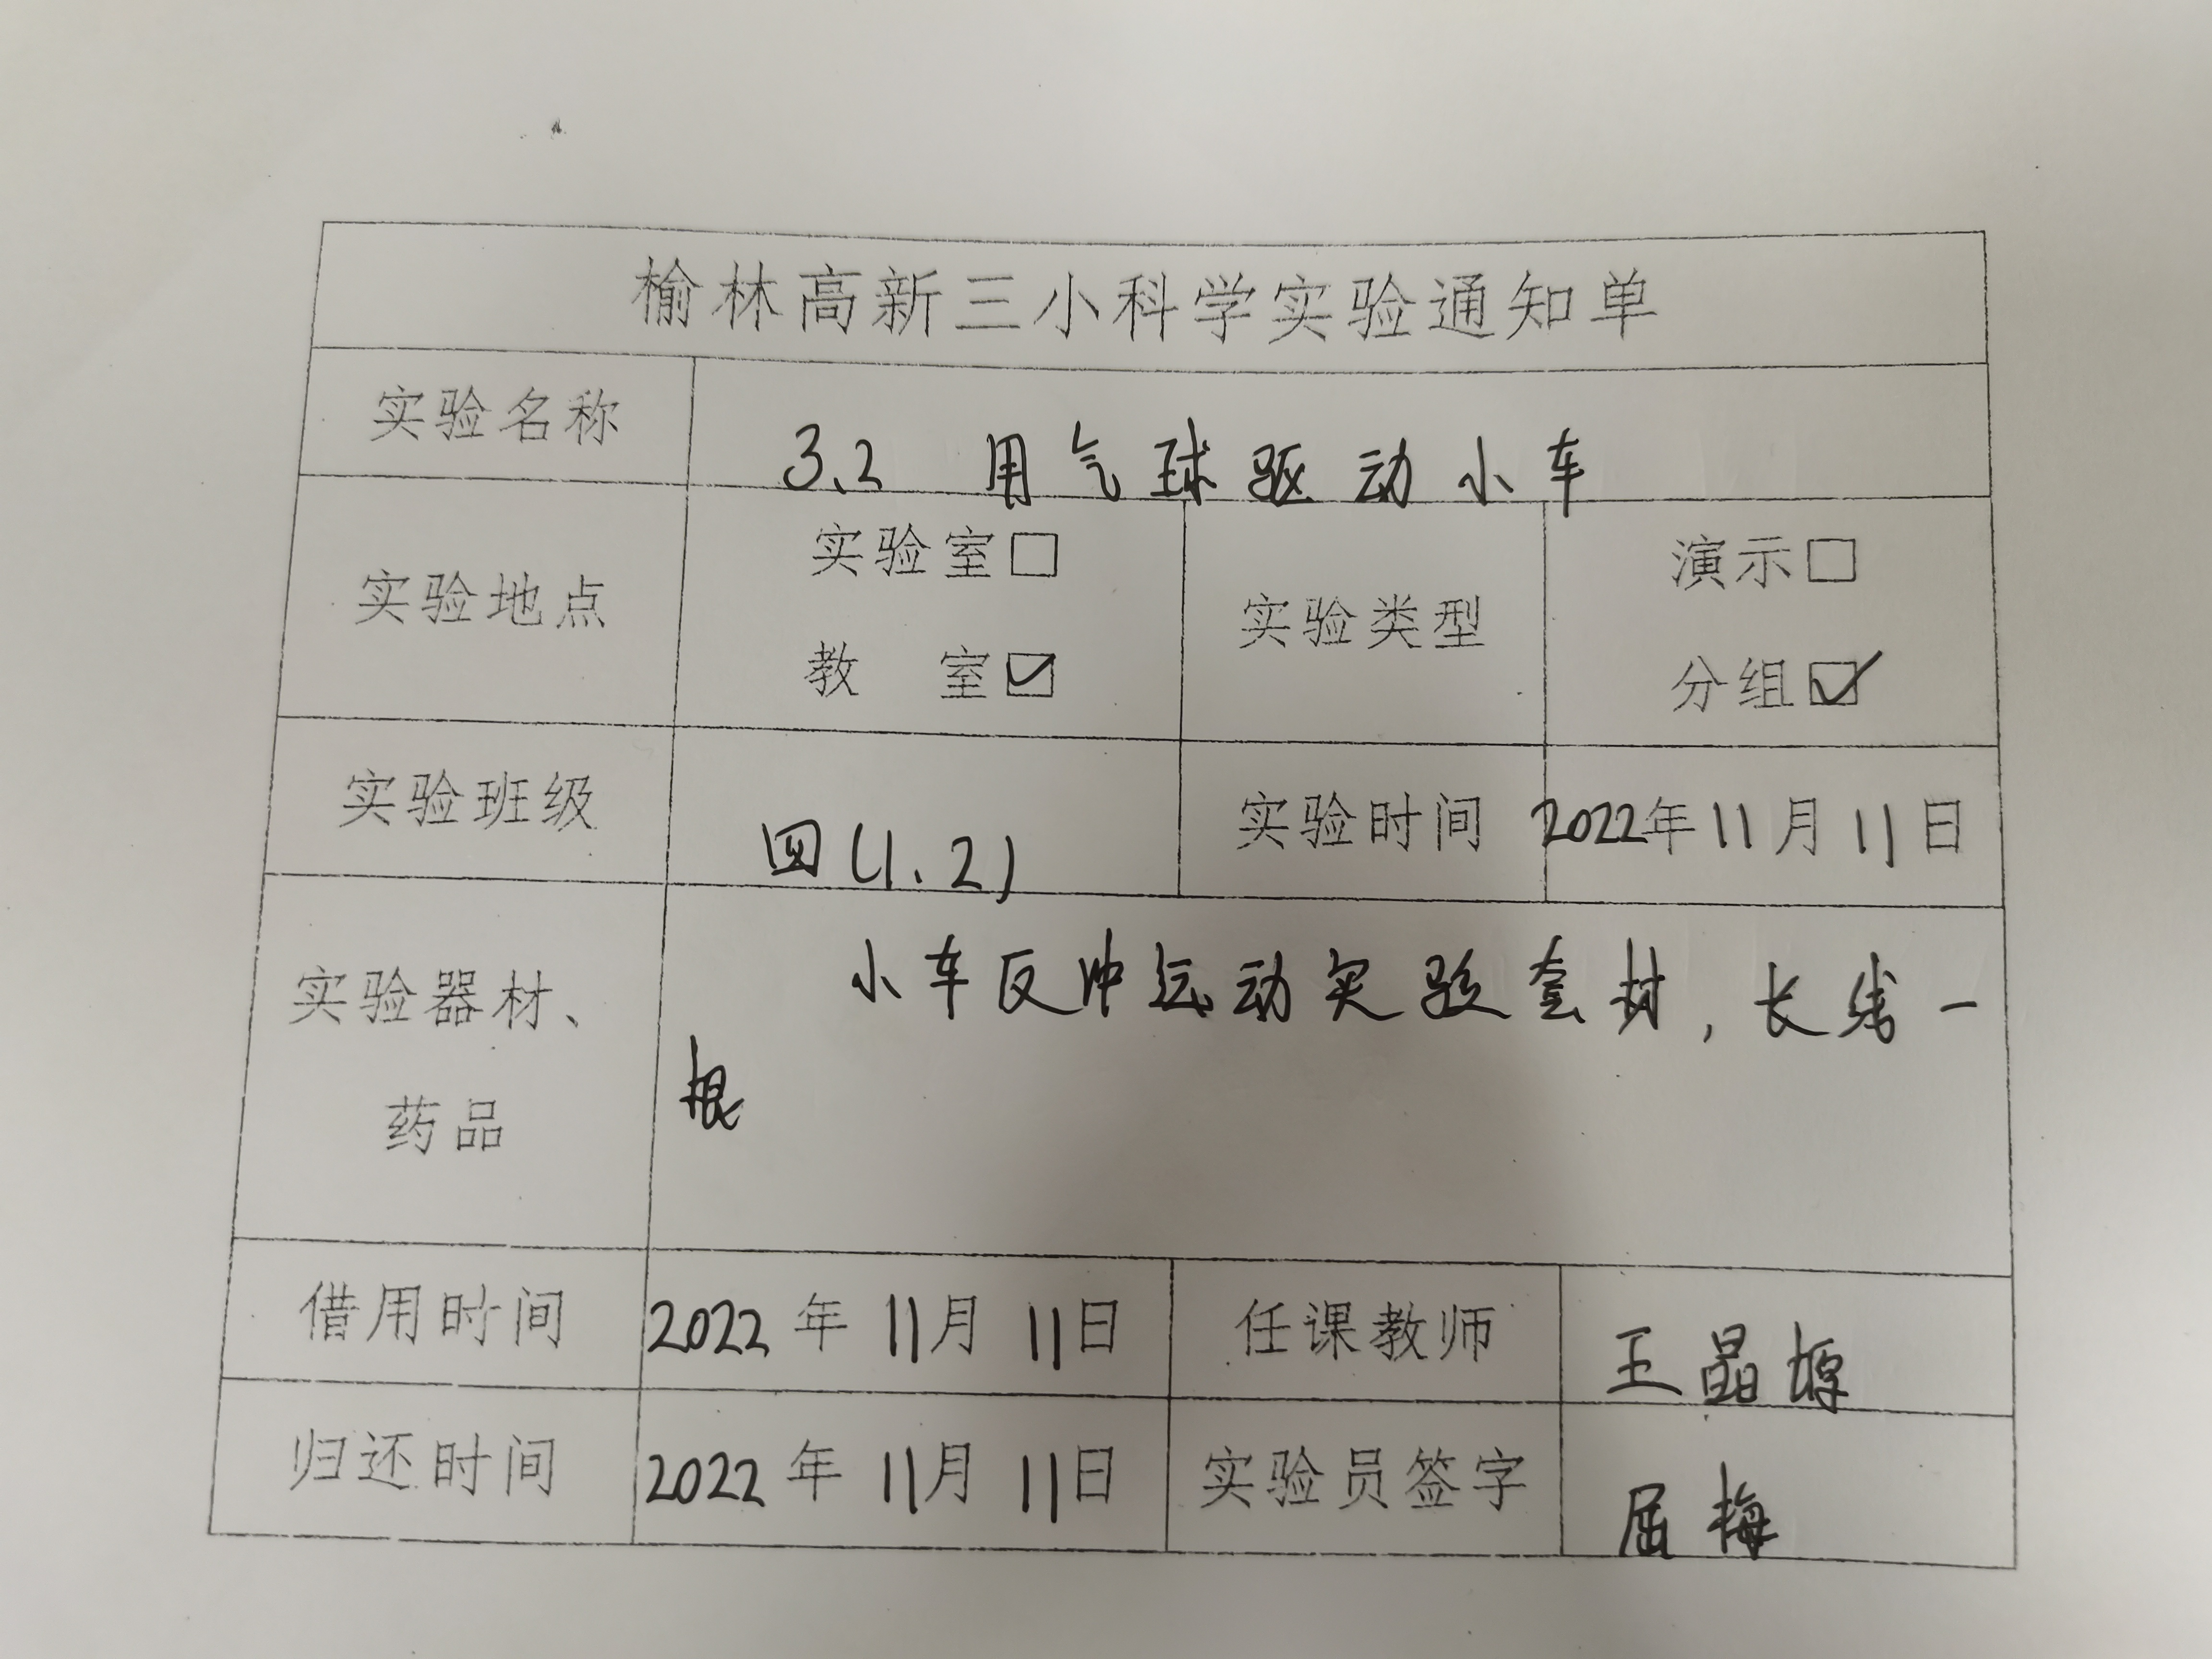 榆林高新三小科学实验通知单
实验名称 3.2 用气球驱动小车
实验地点
实验室□
教 室☑
实验类型
演示□
分组☑
实验班级 四(1.2)
实验时间 2022年11月11日
实验器材、
药品
小车反冲运动实验套材,长线一
根
借用时间 2022年11月11日
任课教师 王晶
归还时间 2022年11月11日
实验员签字 屈梅